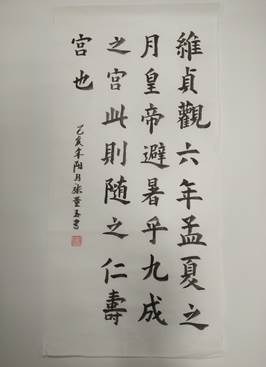 維貞觀六年孟夏之
月皇帝避暑乎九成
之宮此則随之仁壽
宮也
乙亥年陽月張董玉書